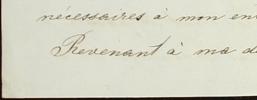 nécessaires à mon en
Revenant à ma d